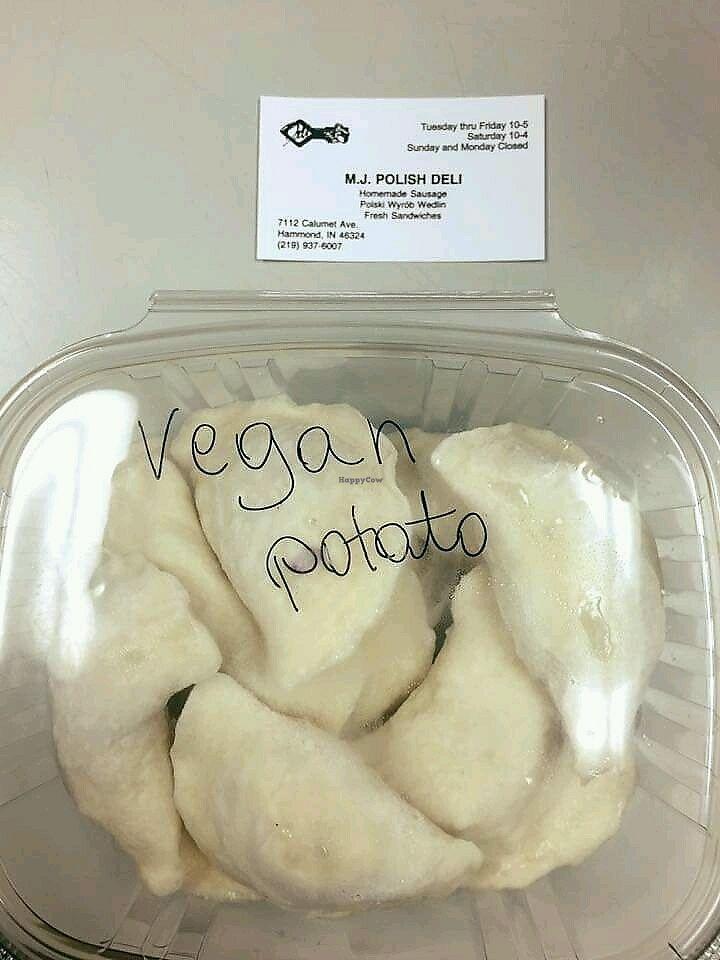 Tuesday thru Friday 10-5
Saturday 10-4
Sunday and Monday Closed
M.J. POLISH DELI
Homemade Sausage
Polski Wyrób Wedlin
Fresh Sandwiches
7112 Calumet Ave.
Hammond, IN 46324
(219) 937-6007
vegan
HappyCow
potato